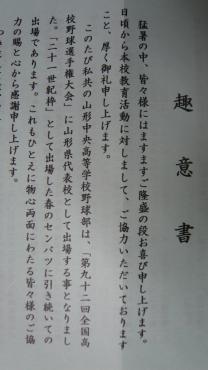 趣意書
猛暑の中、皆々様にはますますご隆盛の段お喜び申し上げます。
日頃から本校教育活動に対しまして、ご協力いただいております
こと、厚く御礼申し上げます。
このたび私共の山形中央高等学校野球部は、「第九十二回全国高
校野球選手権大会」に山形県代表校として出場する事となりまし
た。「二十一世紀枠」として出場した春のセンバツに引き続いての
出場であります。これもひとえに物心両面にわたる皆々様のご協
力の賜と心から感謝申し上げます。